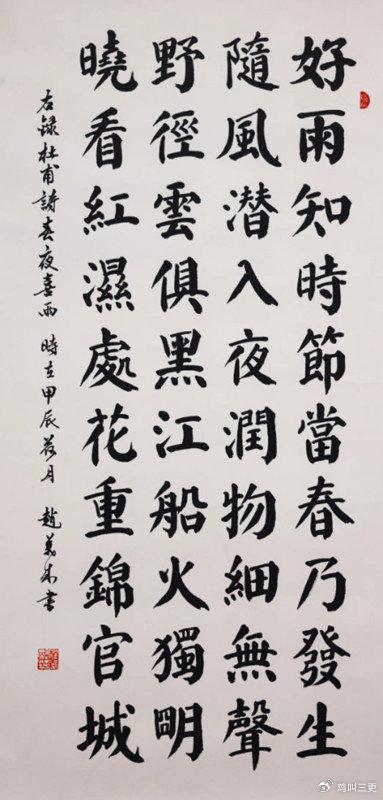 好雨知時節當春乃發生
隨風潜入夜潤物細無聲
野徑雲俱黑江船火獨明
曉看紅濕處花重錦官城
右録杜甫詩春夜喜雨 時在甲辰月 趙書
@鸡叫三更